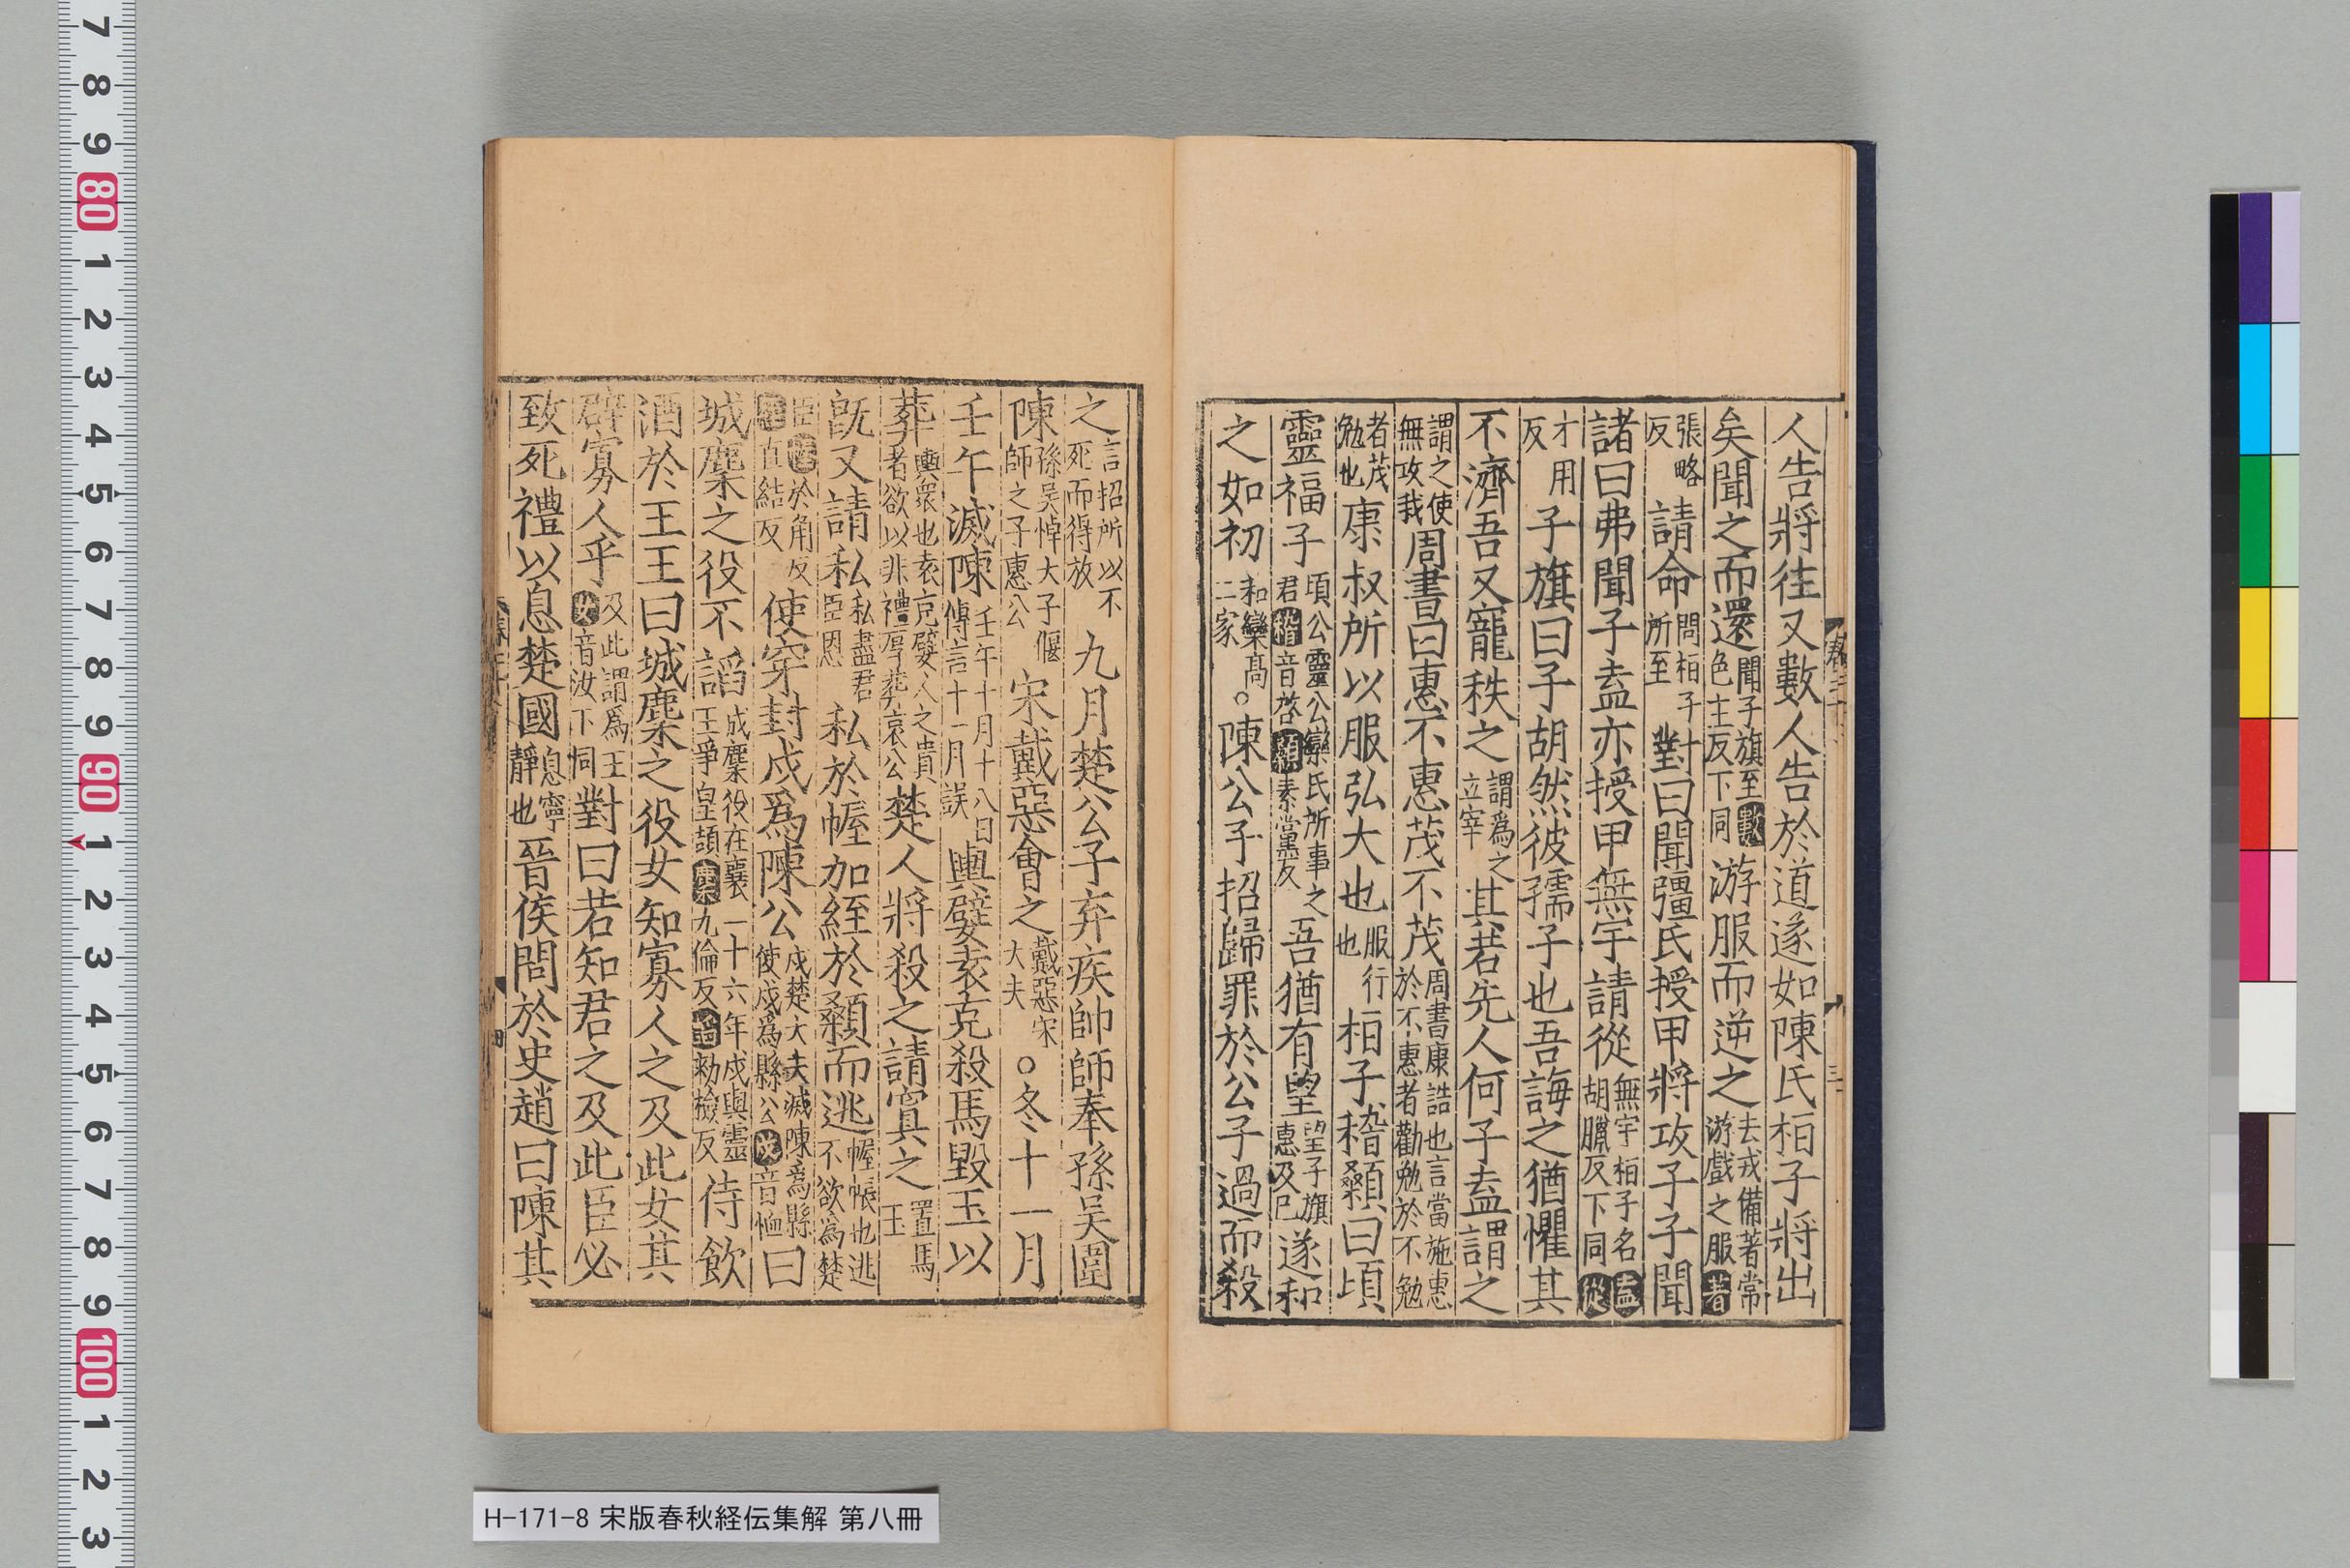 人告將往又數人告於道遂如陳氏桓子將出
矣聞之而還聞子旗至數色主反下同游服而逆之去戎備著常游戲之服著
張略反請命問桓子所至對曰聞彊氏授甲將攻子子聞
諸曰弗聞子盍亦授甲無宇請從無宇桓子名盍胡臘反下同從
才用反子旗曰子胡然彼孺子也吾誨之猶懼其
不濟吾又寵秩之謂爲之立宰其若先人何子盍謂之
謂之使無攻我周書曰惠不惠茂不茂周書康誥也言當施惠於不惠者勸勉於不勉
者茂勉也康叔所以服弘大也服行也桓子稽顙曰頃
靈福子頃公靈公欒氏所事之君稽音啓顙素黨反吾猶有望望子旗惠及己遂和
之如初和欒高二家○陳公子招歸罪於公子過而殺
之言招所以不死而得放九月楚公子弃疾帥師奉孫吳圍
陳孫吳悼大子偃師之子惠公宋戴惡會之戴惡宋大夫○冬十一月
壬午滅陳壬午十月十八日傳言十一月誤輿嬖袁克殺馬毀玉以
葬輿衆也袁克嬖人之貴者欲以非禮厚葬哀公楚人將殺之請寘之置馬玉
旣又請私私盡君臣恩私於幄加絰於顙而逃幄帳也逃不欲爲楚
臣幄於角反絰直結反使穿封戌爲陳公戌楚大夫滅陳爲縣使戌爲縣公戌音恤曰
城麇之役不諂成麇役在襄二十六年戌與靈王爭皇頡麇九倫反諂勑檢反侍飲
酒於王王曰城麇之役女知寡人之及此女其
辟寡人乎及此謂爲王女音汝下同對曰若知君之及此臣必
致死禮以息楚國息寧靜也晉侯問於史趙曰陳其
春二十
三
四
H-171-8 宋版春秋経伝集解 第八冊
7 8 9 80 1 2 3 4 5 6 7 8 9 90 1 2 3 4 5 6 7 8 9 100 1 2 3